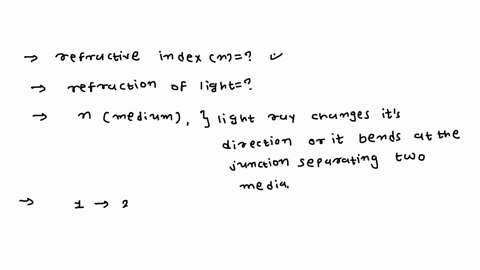 → refractive index (n)=? ✓
→ refraction of light=?
→ n (medium), } light ray changes it's
direction or it bends at the
junction separating two
media.
→ 1 → 2